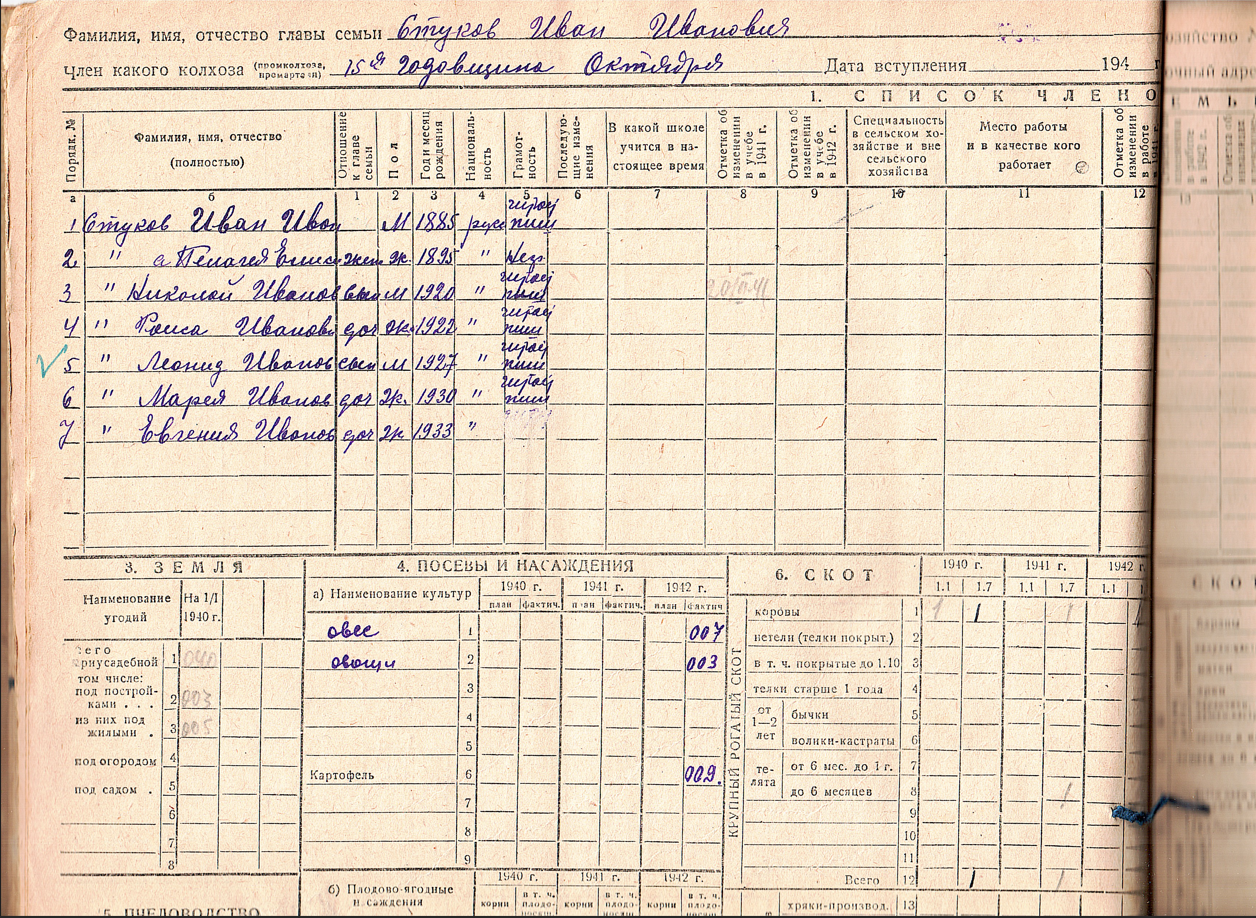 Фамилия, имя, отчество главы семьи Стуков Иван Иванович
Член какого колхоза (промколхоза, промартели) 15ая Годовщина Октября Дата вступления 194 г
1. СПИСОК ЧЛЕНО
Порядк. № Фамилия, имя, отчество (полностью) Отношение к главе семьи Пол Год и месяц рождения Националь-ность Грамот-ность Последую-щие изме-нения В какой школе учится в на-стоящее время Отметка об изменении в учебе в 1941 г. Отметка об изменении в учебе в 1942 г. Специальность в сельском хо-зяйстве и вне сельского хозяйства Место работы и в качестве кого работает Отметка об изменении в работе
а б 1 2 3 4 5 6 7 8 9 10 11 12
1 Стуков Иван Иван М 1885 русс читает пиш
2 " а Пелагея жен ж. 1895 " Негр
3 " Николай Иванов сын М 1920 " читает пиш
4 " Раиса Иванов доч ж. 1922 " читает пиш
5 " Леонид Иванов сын М 1927 " читает пиш
6 " Мария Иванов доч ж. 1930 " читает пиш
7 " Евгения Иванов доч ж 1933 "
3. ЗЕМЛЯ
Наименование угодий На 1/I 1940 г.
приусадебной 1 040
том числе:
под построй-ками . . . 2 003
из них под жилыми . 3 005
4
под огородом
под садом . 5
6
7
8
5. ПЧЕЛОВОДСТВО
4. ПОСЕВЫ И НАСАЖДЕНИЯ
а) Наименование культур 1940 г. 1941 г. 1942 г.
план фактич. план фактич. план фактич
овес 1 007
овощи 2 003
3
4
5
Картофель 6 009.
7
8
9
б) Плодово-ягодные насаждения 1940 г. 1941 г. 1942 г.
корни в т. ч. плодо-носящ. корни в т. ч. плодо-носящ. корни в т. ч. плодо-носящ.
6. СКОТ 1940 г. 1941 г. 1942 г.
1.1 1.7 1.1 1.7 1.1 1.7
КРУПНЫЙ РОГАТЫЙ СКОТ
коровы 1 1 1 1 1
нетели (телки покрыт.) 2
в т. ч. покрытые до 1.10 3
телки старше 1 года 4
от 1—2 лет бычки 5
волики-кастраты 6
те-лята от 6 мес. до 1 г. 7
до 6 месяцев 8 1
9
10
11
Всего 12 1 1
хряки-производ. 13